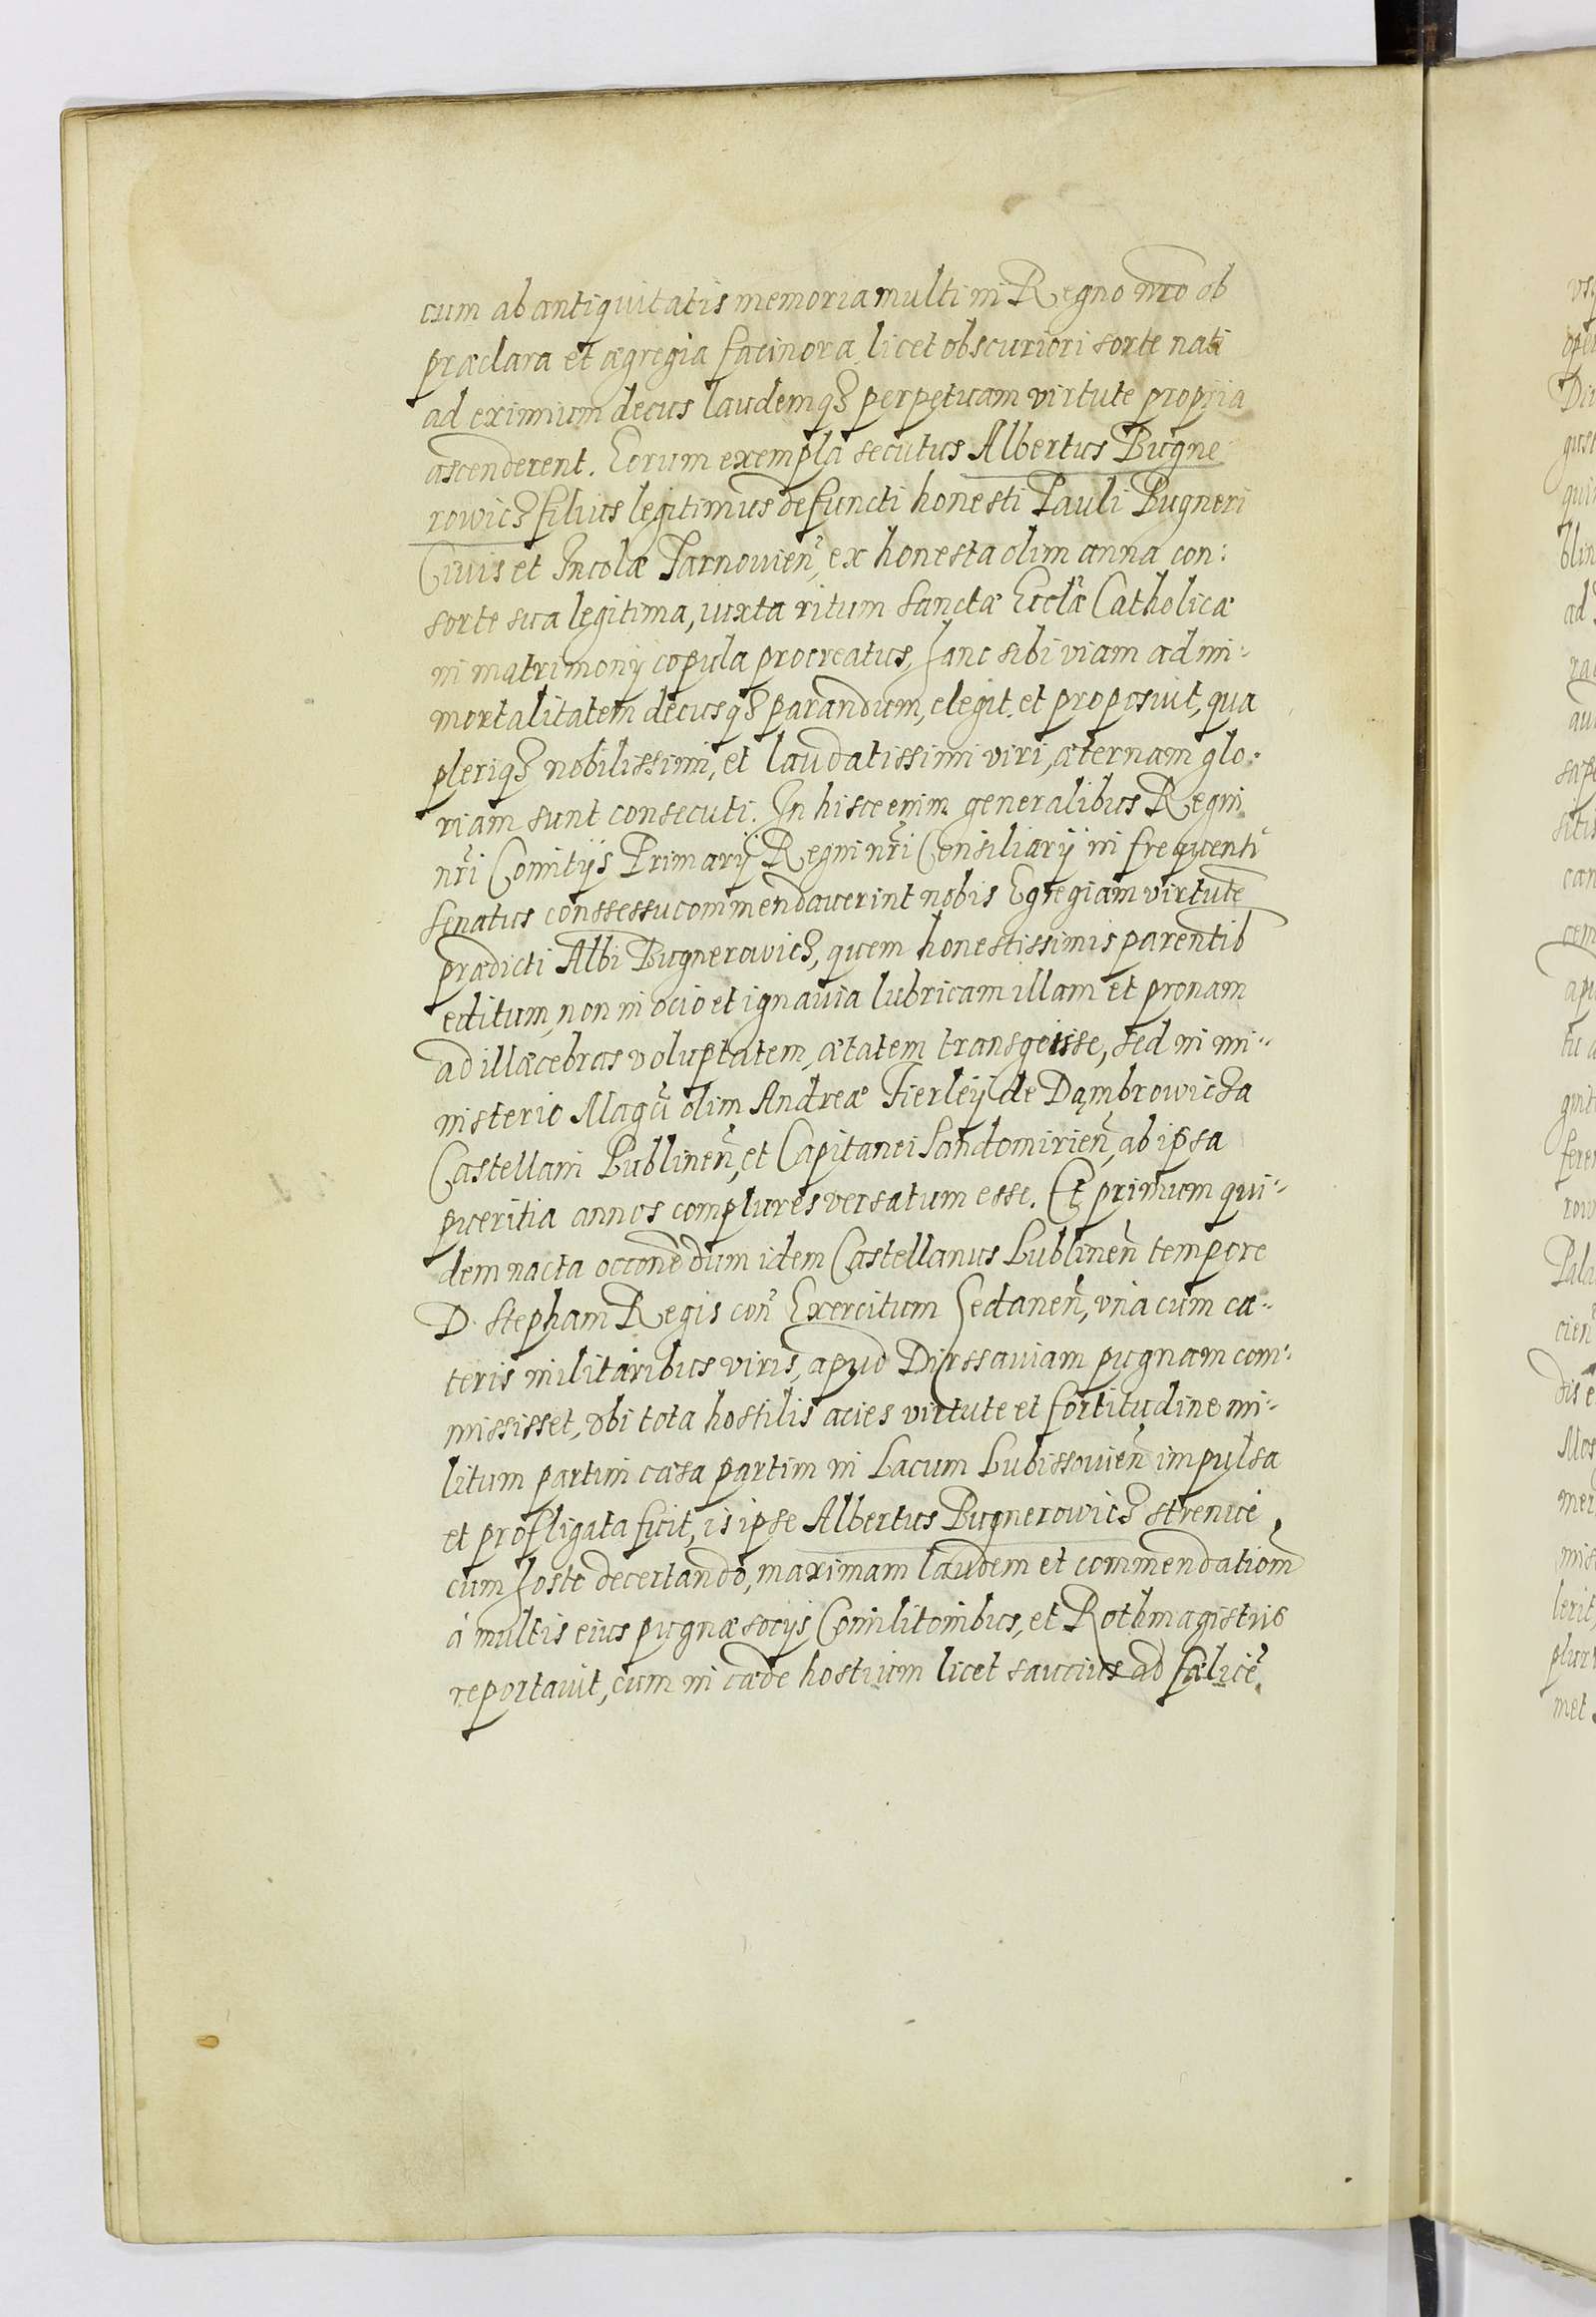 cum ab antiquitatis memoria multi in Regno nr̃o ob
præclara et ægregia facinora, licet obscuriori sorte nati
ad eximium decus laudemqȝ perpetuam virtute propria
ascenderent. Eorum exempla secutus Albertus Bugne
rowicz filius legitimus defuncti honesti Pauli Bugneri
Civis et Incolæ Tarnovien̄, ex honesta olim anna con:
sorte sua legitima, iuxta ritum Sanctæ Eccl̃æ Catholicæ
in matrimonij copula procreatus, hanc sibi viam ad im:
mortalitatem decusqȝ parandum, elegit et proposuit, qua
pleriqȝ nobilissimi, et laudatissimi viri, æternam glo:
riam sunt consecuti. In hisce enim generalibus Regni
nr̃i Comitijs Primarij Regni nr̃i Consiliarij in frequenti
Senatus conssessu commendauerint nobis Egregiam virtutē
prædicti Albi Bugnerowicz, quem honestissimis parentib
editum, non in ocio et ignauia lubricam illam et pronam
ad illæcebras voluptatem, ætatem transgeisse, sed in mi:
nisterio Magcī olim Andreæ Fierleij de Dąmbrowicza
Castellani Lublinen̄, et Capitanei Sandomirien̄, ab ipsa
pueritia annos complures versatum esse. Et primum qui:
dem nacta occōne dum idem Castellanus Lublinen̄ tempore
D. Stephani Regis con̄ Exercitum Gedanen̄, vnà cum cæ:
teris militaribus viris, apud Dirssauiam pugnam com:
mississet, vbi tota hostilis acies virtute et fortitudine mi:
litum partim cæsa partim in Lacum Lubissouien̄ impulsa
et profligata fuit, is ipse Albertus Bugnerowicz strenuè
cum hoste decertando, maximam laudem et commendationē
à multis eius pugnæ socijs Comilitonibus, et Rothmagistris
reportauit, cum in cæde hostium licet saucius ad fælicē